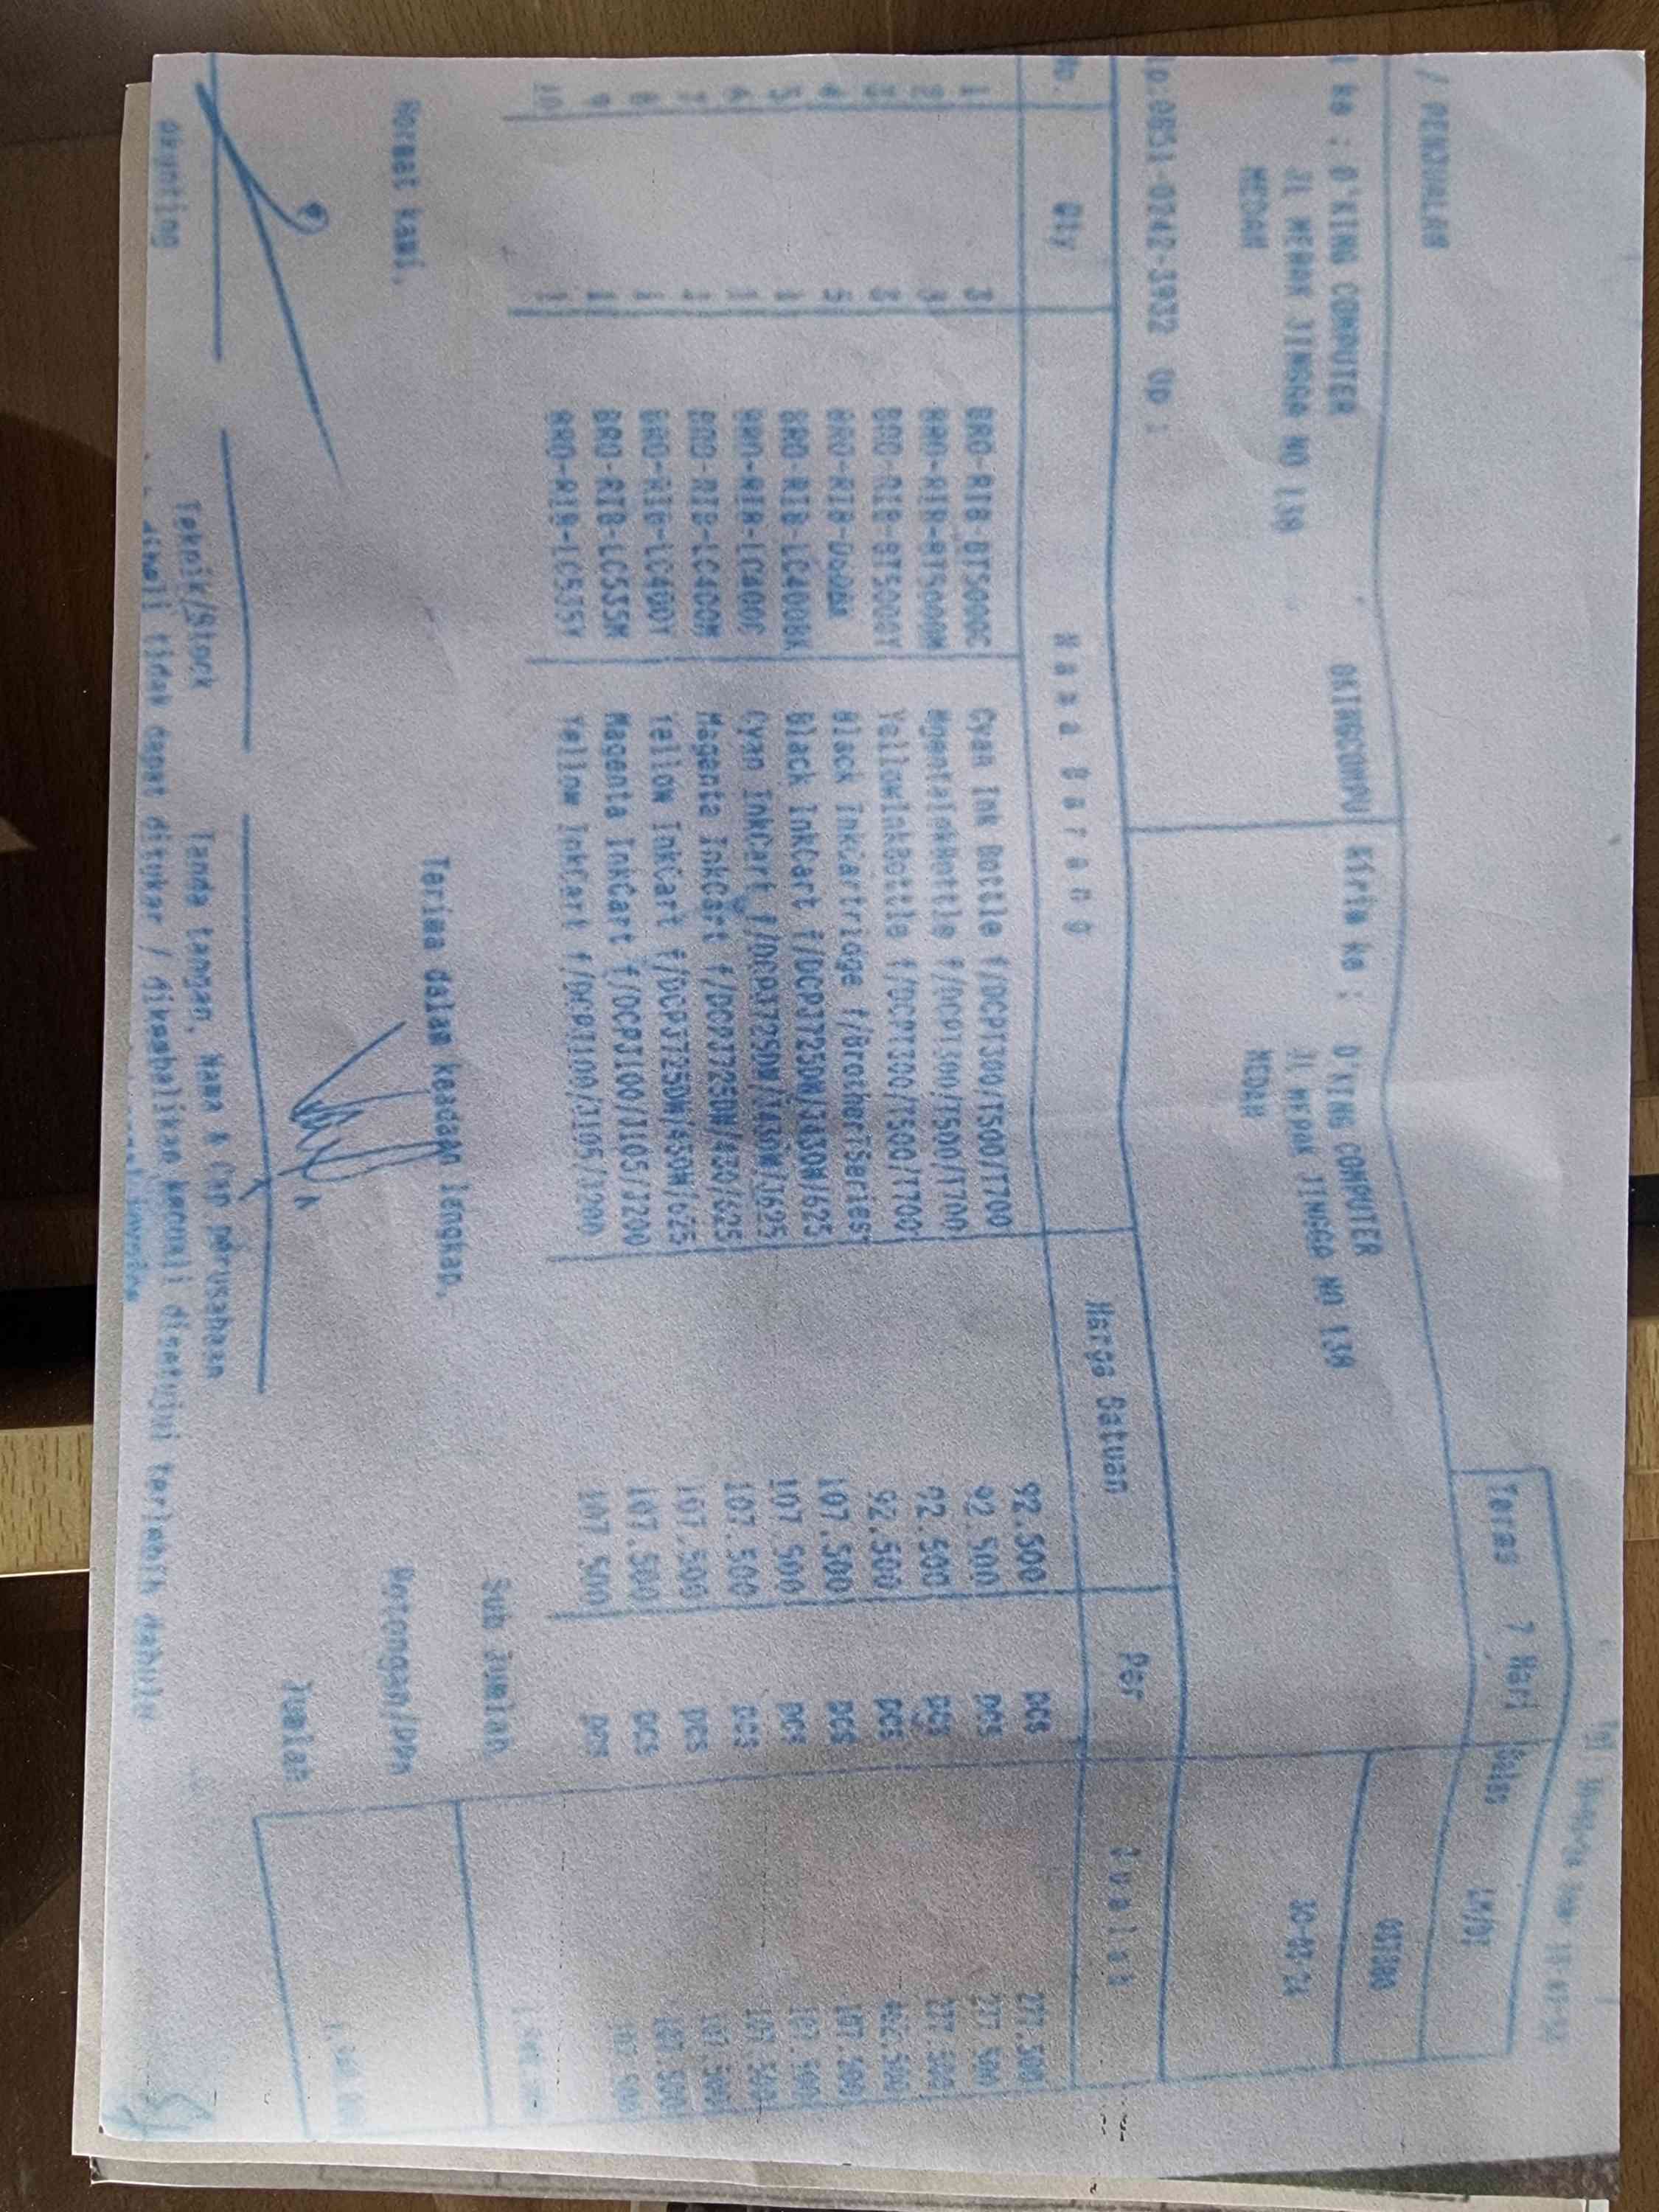 / PENJUALAN
Terms 7 Hari Sales LM/01
ke : O'KING COMPUTER OKINGCOMPU Kirim Ke : O'KING COMPUTER
JL MERAK JINGGA NO 13A JL MERAK JINGGA NO 13A
MEDAN MEDAN
p:0851-0242-3932 Up :
No. Qty Nama Barang Harga Satuan Per Jumlah
1 3 BRO-RIB-BT5000C Cyan Ink Bottle f/DCPT300/T500/T700 92.500 pcs 277.500
2 3 BRO-RIB-BT5000M MgentaInkBottle f/DCPT300/T500/T700 92.500 pcs 277.500
3 3 BRO-RIB-BT5000Y YellowInkBottle f/DCPT300/T500/T700 92.500 pcs 277.500
4 5 BRO-RIB- Black InkCartridge f/BrotherTSeries 92.500 pcs 462.500
5 1 BRO-RIB-LC400BK Black InkCart f/DCPJ725DW/J430W/625 107.500 pcs 107.500
6 1 BRO-RIB-LC400C Cyan InkCart f/DCPJ725DW/J430W/J625 107.500 pcs 107.500
7 1 BRO-RIB-LC400M Magenta InkCart f/DCPJ725DW/430/625 107.500 pcs 107.500
8 1 BRO-RIB-LC400Y Yellow InkCart f/DCPJ725DW/430W/625 107.500 pcs 107.500
9 1 BRO-RIB-LC535M Magenta InkCart f/DCPJ100/J105/J200 107.500 pcs 107.500
10 1 BRO-RIB-LC535Y Yellow InkCart f/DCPJ100/J105/J200 107.500 pcs 107.500
Sub Jumlah
Hormat kami, Terima dalam keadaan lengkap, Potongan/PPn
Jumlah
Akunting Teknik/Stock Tanda tangan, Nama & Cap perusahaan
dibeli tidak dapat ditukar / dikembalikan kecuali disetujui terlebih dahulu